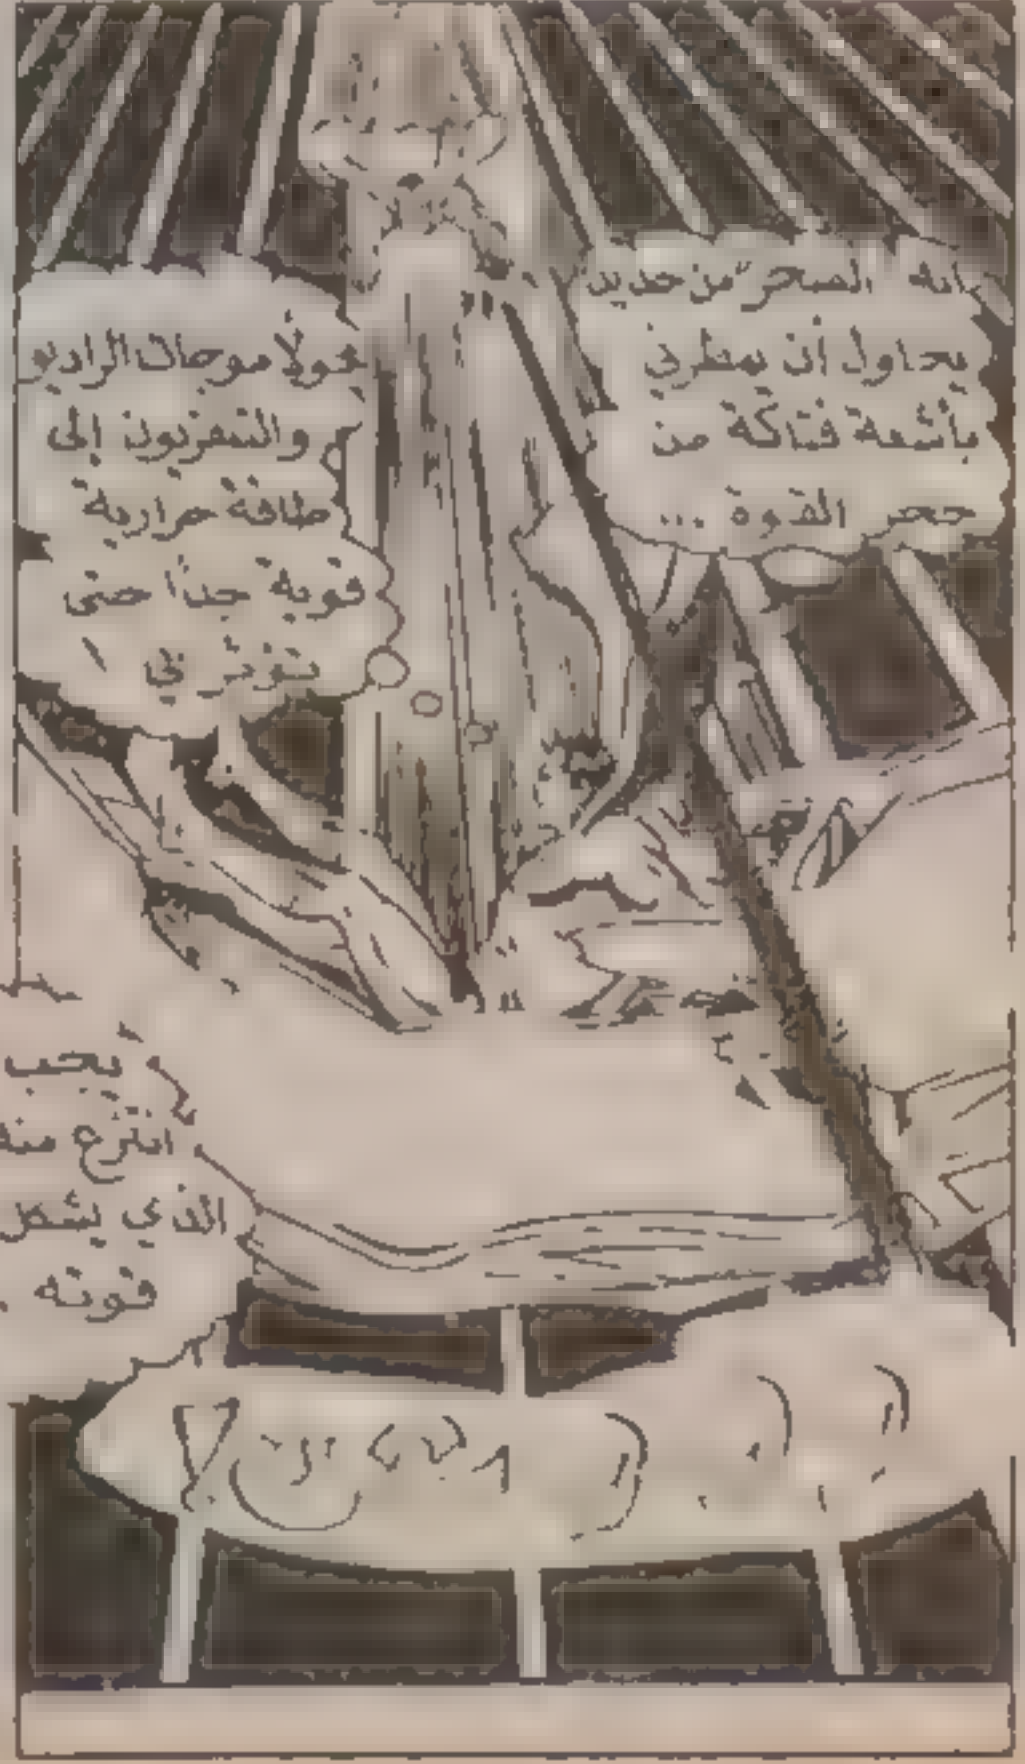 إنه الصخر من جديد
يحاول أن يمطرني
بأشعة فتاكة من
حجر القوة ...
محولا موجات الراديو
والتلفزيون إلى
طاقة حرارية
قوية جدًا حتى
تؤثر بي
يجب
انتزع منه
الذي يشكل
قوته